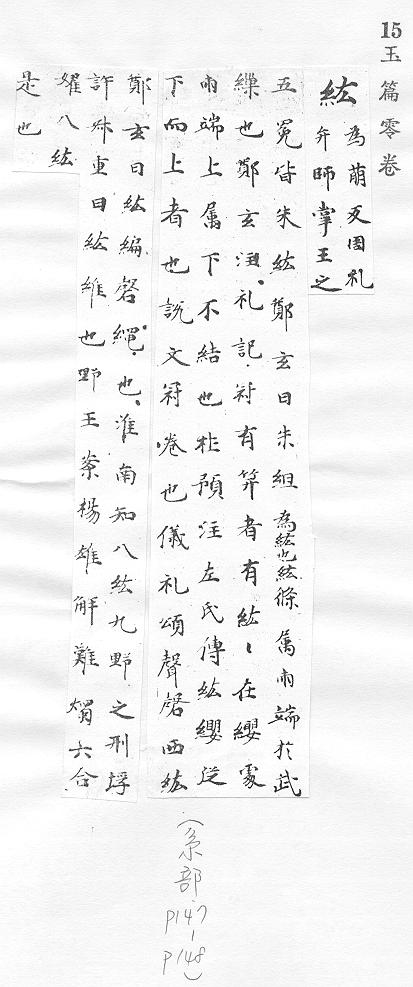 15 玉篇零卷
紘 為萠反周礼
弁師掌王之
五冕皆朱紘鄭玄曰朱組為紘也紘條属兩端於武
繅也鄭玄注礼記冠有笄者有紘〻在纓處
兩端上属下不結也杜預注左氏傳紘纓従
下而上者也說文冠卷也儀礼頌聲磬西紘
鄭玄曰紘編磬繩也淮南知八紘九野之刑埒
許叔重曰紘維也野王案楊雄解難燭六合
燿八紘
是也
(糸部 p147-p148)